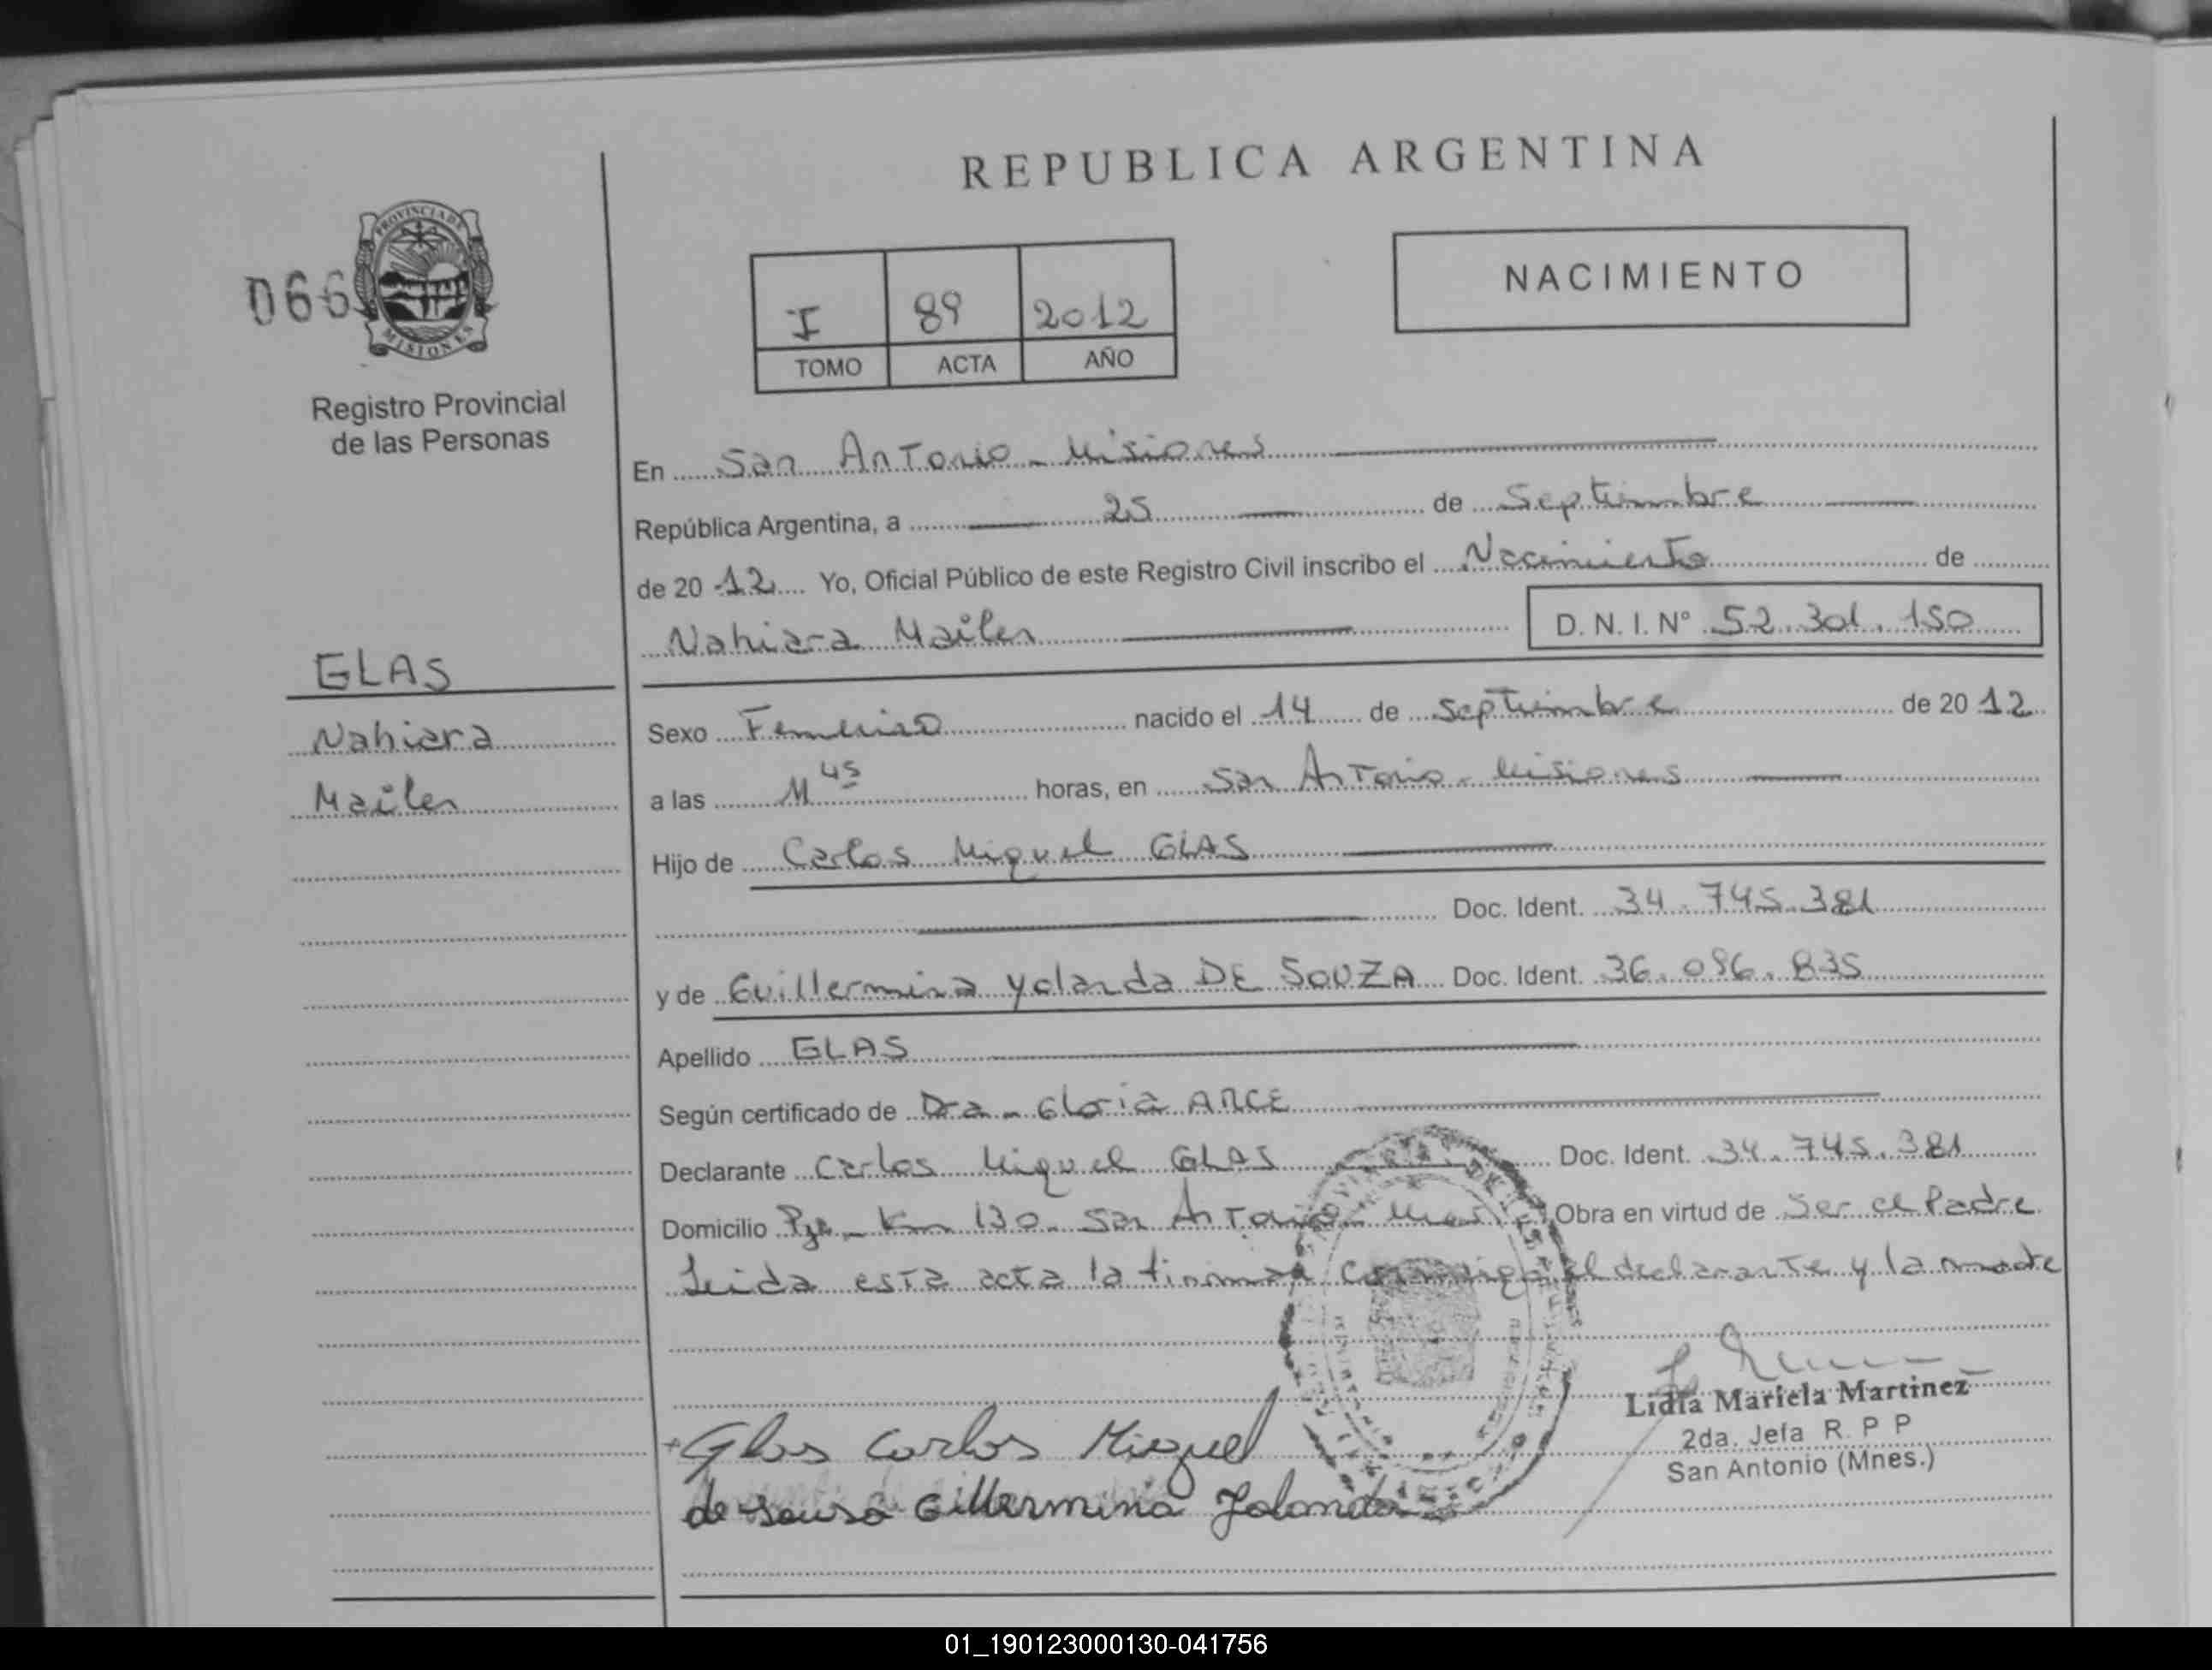 REPUBLICA ARGENTINA
066
PROVINCIA DE
MISIONES
Registro Provincial
de las Personas
I 89 2012
TOMO ACTA AÑO
NACIMIENTO
En San Antonio - Misiones
República Argentina, a 25 de Septiembre
de 2012 Yo, Oficial Público de este Registro Civil inscribo el Nacimiento de
Nahiara Mailen D. N. I. Nº 52.301.150
GLAS
Nahiara
Mailen
Sexo Femenino nacido el 14 de Septiembre de 2012
a las 11 45 horas, en San Antonio - Misiones
Hijo de Carlos Miguel GLAS
Doc. Ident. 34.745.381
y de Guillermina Yolanda DE SOUZA Doc. Ident. 36.096.835
Apellido GLAS
Según certificado de Dra - Gloria ARCE
Declarante Carlos Miguel GLAS Doc. Ident. 34.745.381
Domicilio Pje - Km 130 - San Antonio - Obra en virtud de Ser el Padre
Leida esta acta la firman conmigo el declarante y la madre
Lidia Mariela Martinez
2da. Jefa R P P
San Antonio (Mnes.)
Glas Carlos Miguel
de sousa Gillermina Jolanda
01_190123000130-041756